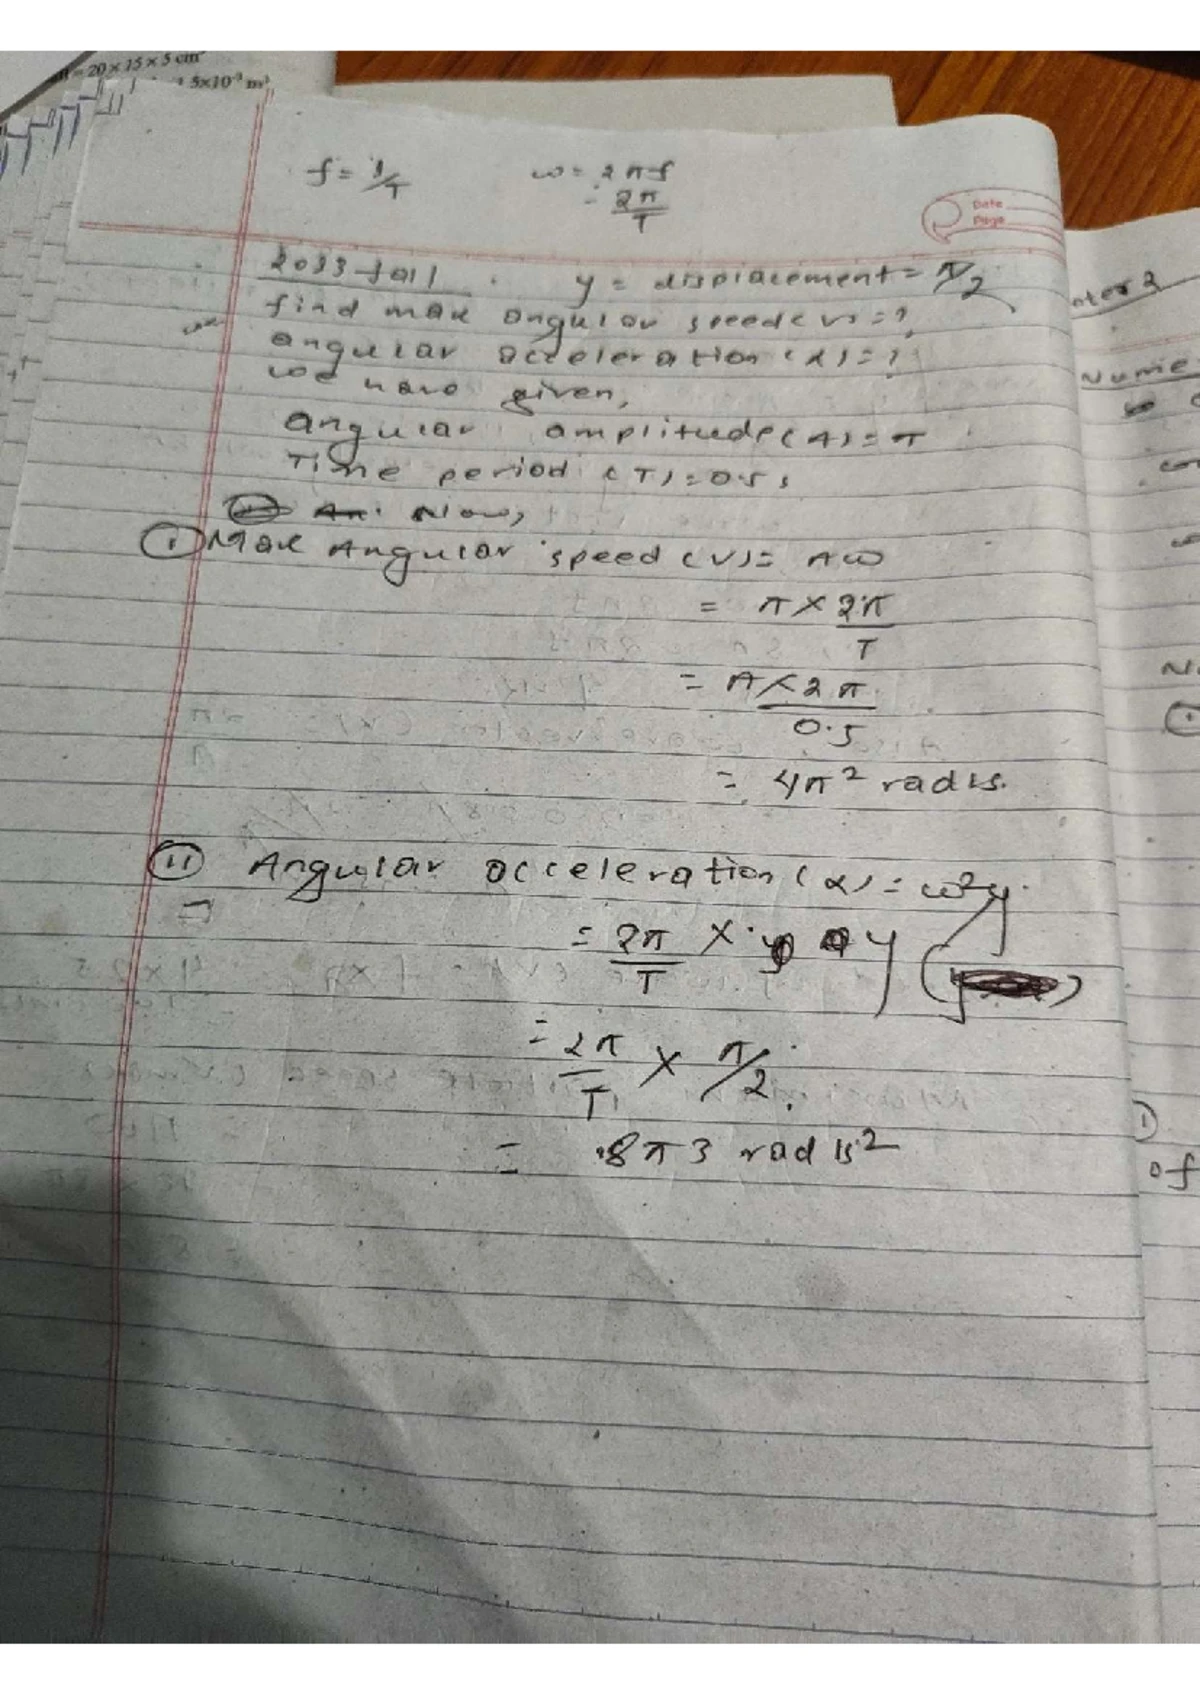 = 20 × 15 × 5 cm³
5×10⁻³ m³
f = 1/T ω = 2πf
= 2π/T
Date
Page
2033-fall . y = displacement = π/2
find max angular speed(v) = ?
angular acceleration (α) = ?
we have given,
angular amplitude(A) = π
Time period (T) = 0.5 s
Now,
(i) Max Angular speed (v) = Aω
= π × 2π/T
= π × 2π/0.5
= 4π² rad/s.
(ii) Angular acceleration (α) = ω²y.
= 2π/T × y
= 2π/T × π/2.
= 8π3 rad/s²
oter 2
Nume
of